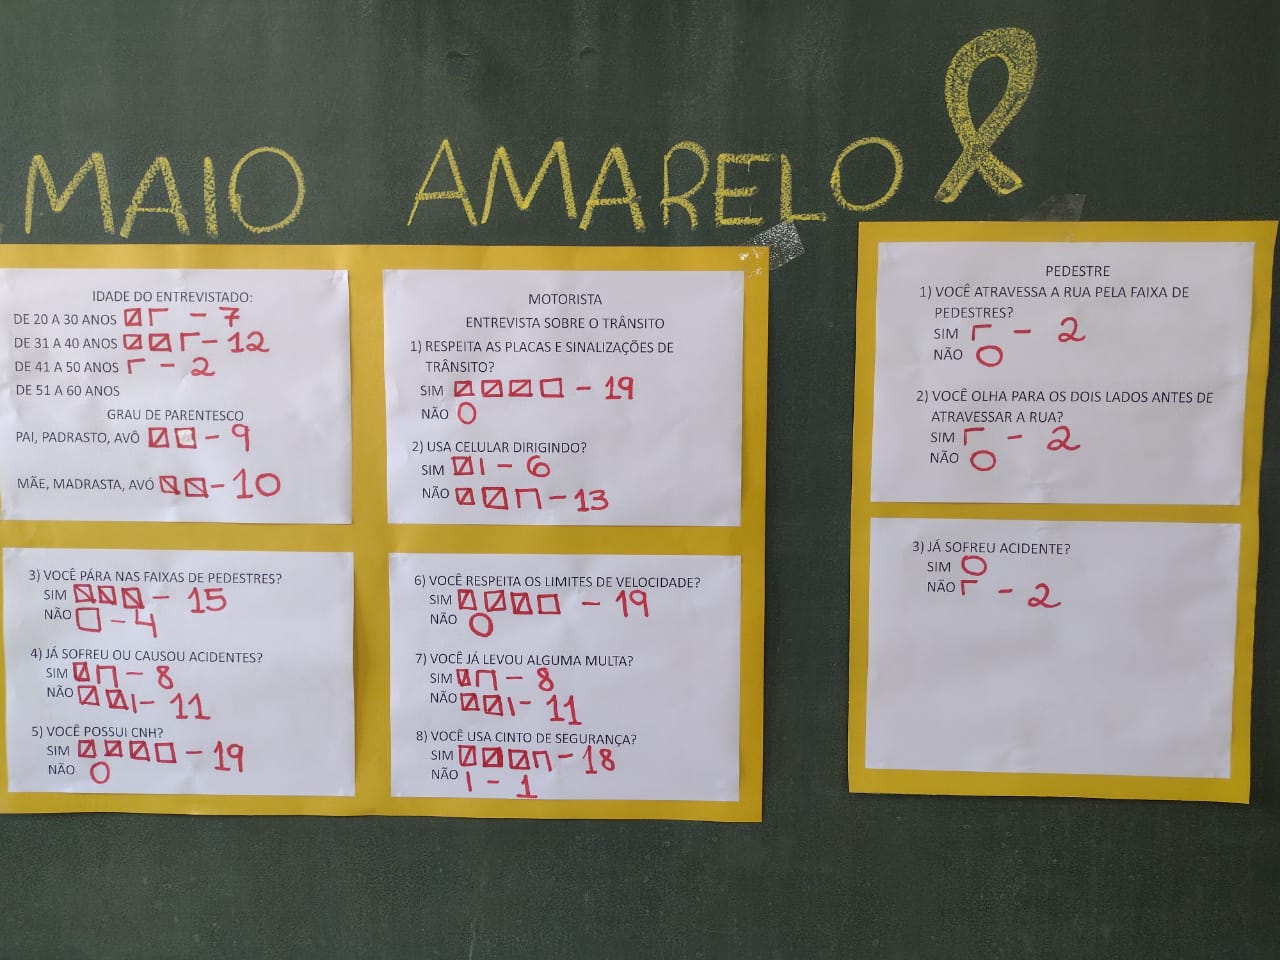 MAIO AMARELO
IDADE DO ENTREVISTADO:
DE 20 A 30 ANOS - 7
DE 31 A 40 ANOS - 12
DE 41 A 50 ANOS - 2
DE 51 A 60 ANOS
GRAU DE PARENTESCO
PAI, PADRASTO, AVÔ - 9
MÃE, MADRASTA, AVÓ - 10
MOTORISTA
ENTREVISTA SOBRE O TRÂNSITO
1) RESPEITA AS PLACAS E SINALIZAÇÕES DE
TRÂNSITO?
SIM - 19
NÃO 0
2) USA CELULAR DIRIGINDO?
SIM - 6
NÃO - 13
3) VOCÊ PÁRA NAS FAIXAS DE PEDESTRES?
SIM - 15
NÃO - 4
4) JÁ SOFREU OU CAUSOU ACIDENTES?
SIM - 8
NÃO - 11
5) VOCÊ POSSUI CNH?
SIM - 19
NÃO 0
6) VOCÊ RESPEITA OS LIMITES DE VELOCIDADE?
SIM - 19
NÃO 0
7) VOCÊ JÁ LEVOU ALGUMA MULTA?
SIM - 8
NÃO - 11
8) VOCÊ USA CINTO DE SEGURANÇA?
SIM - 18
NÃO - 1
PEDESTRE
1) VOCÊ ATRAVESSA A RUA PELA FAIXA DE
PEDESTRES?
SIM - 2
NÃO 0
2) VOCÊ OLHA PARA OS DOIS LADOS ANTES DE
ATRAVESSAR A RUA?
SIM - 2
NÃO 0
3) JÁ SOFREU ACIDENTE?
SIM 0
NÃO - 2